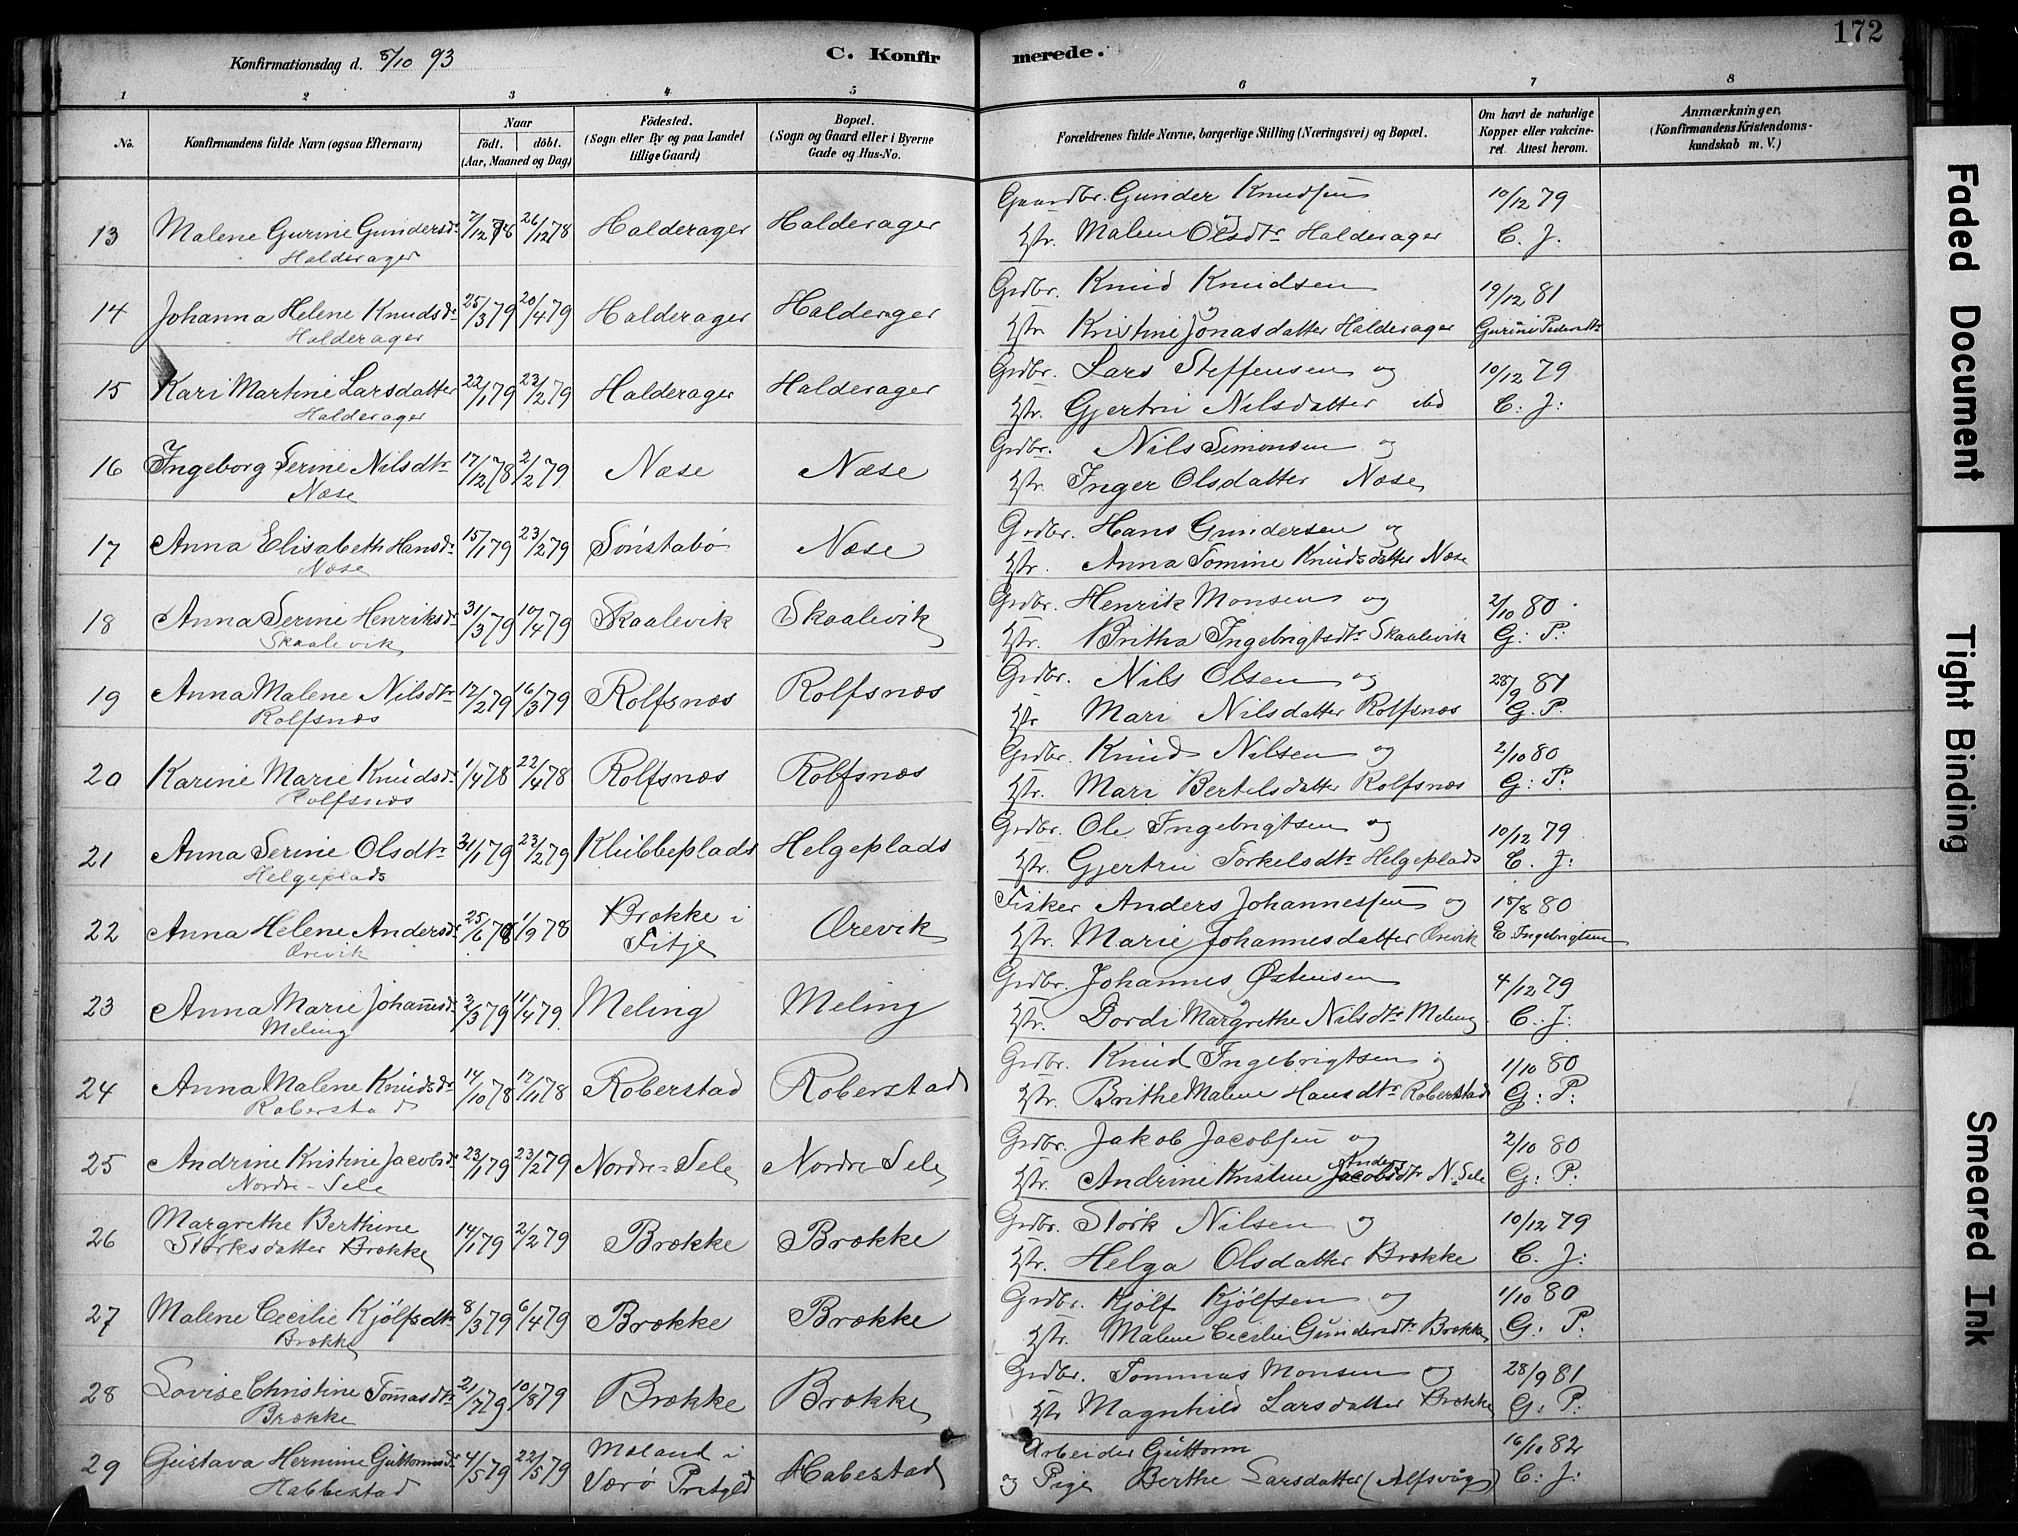 172
Konfirmationsdag d. 8/10 93
C. Konfirmerede.
1 2 3 4 5 6 7 8
No.
Konfirmandens fulde Navn (ogsaa Efternavn)
Naar
födt. döbt.
(Aar, Maaned og Dag)
Födested.
(Sogn eller By og paa Landet
tillige Gaard)
Bopæl.
(Sogn og Gaard eller i Byerne
Gade og Hus-No.
Forældrenes fulde Navne, borgerlige Stilling (Næringsvei) og Bopæl.
Om havt de naturlige
Kopper eller vakcine-
ret. Attest herom.
Anmærkninger.
(Konfirmandens Kristendoms-
kundskab m. V.)
13 Malene Gurine Gundersdr 7/12 78 26/12 78 Halderager Halderager Gaardbr. Gunder Knudsen 10/12 79
Halderager og Hstr. Malene Olsdtr Halderager C. J.
14 Johanna Helene Knudsdr 25/3 79 20/4 79 Halderager Halderager Grdbr. Knud Knudsen 19/12 81
Halderager og Hstr Kristine Jonasdatter Halderager Gurine Pedersdtr
15 Kari Martine Larsdatter 22/1 79 23/2 79 Halderager Halderager Grdbr. Lars Steffensen og 10/12 79
Halderager Hstr. Gjertru Nilsdatter ibd C: J:
16 Ingeborg Serine Nilsdtr 17/12 78 2/2 79 Næse Næse Grdbr. Nils Simonsen og
Næse Hstr. Inger Olsdatter Næse
17 Anna Elisabeth Hansdr 15/1 79 23/2 79 Sönstabö Næse Grdbr. Hans Gundersen og
Næse Hstr. Anna Tomine Knudsdatter Næse
18 Anna Serine Henriksdr 31/3 79 10/4 79 Skaalevik Skaalevik Grdbr. Henrik Monsen og 2/10 80
Skaalevik Hstr. Britha Ingebrigtsdtr Skaalevik G: P:
19 Anna Malene Nilsdtr 12/2 79 16/3 79 Rolfsnæs Rolfsnæs Grdbr. Nils Olsen og 28/9 81
Rolfsnæs Hstr Mari Nilsdatter Rolfsnæs G. P.
20 Karine Marie Knudsdr 1/4 78 22/4 78 Rolfsnæs Rolfsnæs Grdbr. Knud Nilsen og 2/10 80
Rolfsnæs Hstr. Mari Bertelsdatter Rolfsnæs G: P:
21 Anna Serine Olsdtr 31/1 79 23/2 79 Klubbeplads Helgeplads Grdbr. Ole Ingebrigtsen og 10/12 79
Helgeplads Hstr. Gjertru Torkelsdtr Helgeplads C. J:
22 Anna Helene Andersdr 25/6 78 1/9 78 Brække i Fitje Orevik Fisker Anders Johannessen og 15/8 80
Orevik Hstr. Marie Johannesdatter Orevik E. Ingebrigtsen
23 Anna Marie Johansdr 2/3 79 11/4 79 Meling Meling Grdbr. Johannes Østensen 4/12 79
Meling og Hstr. Dordi Margrethe Nilsdtr Meling C: J:
24 Anna Malene Knudsdr 14/10 78 17/11 78 Roberstad Roberstad Grdbr. Knud Ingebrigtsen og 1/10 80
Roberstad Hstr. Brithe Malene Hansdtr Roberstad G: P:
25 Andrine Kristine Jacobsdr 23/1 79 23/2 79 Nordre-Sele Nordre-Sele Grdbr. Jakob Jacobsen og 2/10 80
Nordre-Sele Hstr. Andrine Kristine Jacobsdtr Anders N. Sele G: P:
26 Margrethe Berthine 14/1 79 2/2 79 Brække Brække Grdbr. Størk Nilsen og 10/12 79
Størksdatter Brække Hstr. Helga Olsdatter Brække C. J:
27 Malene Cecilie Kjölfsdtr 8/3 79 6/4 79 Brække Brække Grdbr. Kjölf Kjölfsen og 1/10 80
Brække Hstr. Malene Cecilie Gundersdtr Brække G: P:
28 Lovise Christine Tomasdtr 21/7 79 10/8 79 Brække Brække Grdbr. Tommas Monsen og 28/9 81
Brække Hstr Magnhild Larsdatter Brække G: P:
29 Gustava Hermine Guttormsdr 4/5 79 22/5 79 Moland i Værö Prstgld Habestad Arbeider Guttorm 16/10 82
Habbestad og Pige Berthe Larsdatter (Alfsvåg) C: J:
Faded Document
Tight Binding
Smeared Ink